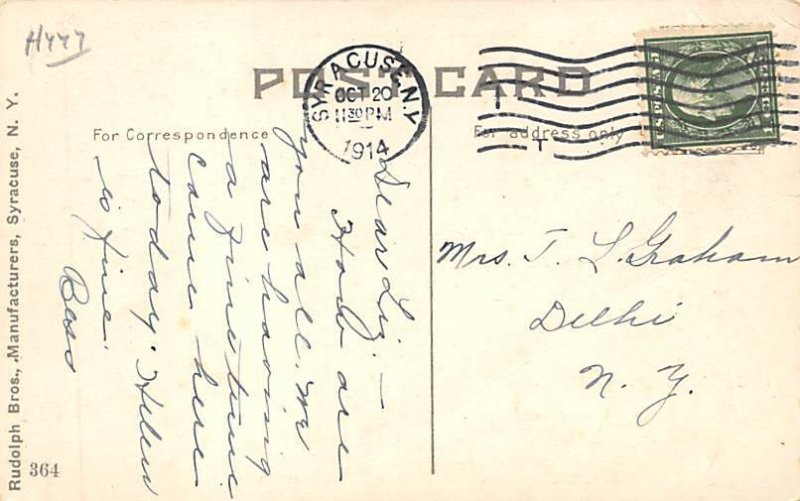 H777
POST CARD
SYRACUSE N.Y.
OCT 20
11 30 PM
1914
For Correspondence
For address only
Dear Liz. —
How are
you all. We
are having
a fine time
Came here
today. Helen
is fine.
Bess
Mrs. T. L. Graham
Delhi
N. Y.
Rudolph Bros., Manufacturers, Syracuse, N. Y.
364